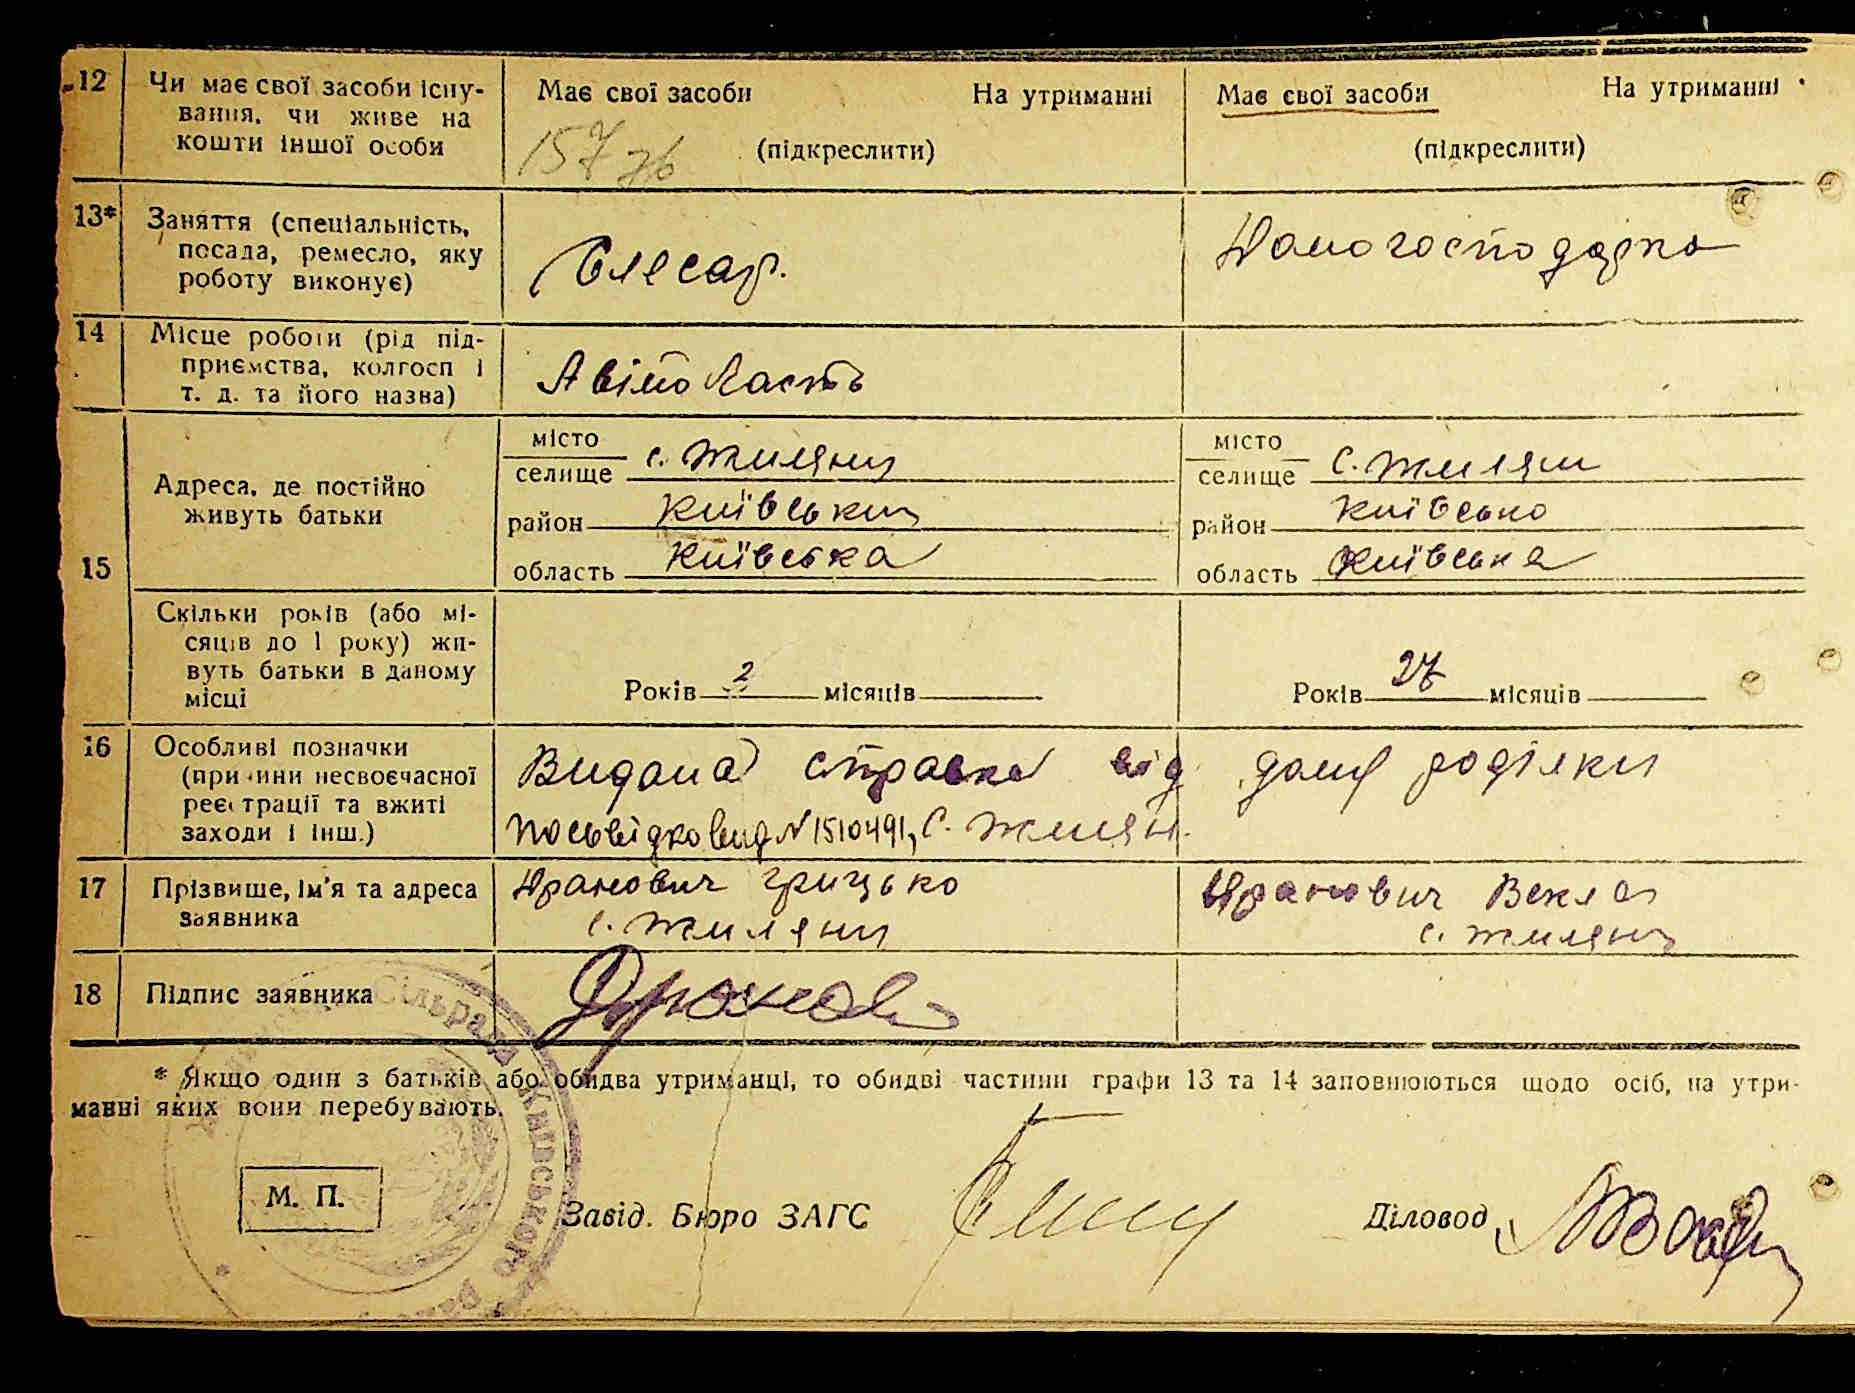 12 Чи має свої засоби існу-
вання, чи живе на
кошти іншої особи
Має свої засоби На утриманні
157
(підкреслити)
Має свої засоби На утриманні
(підкреслити)
13* Заняття (спеціальність,
посада, ремесло, яку
роботу виконує)
Слесар.
Домогосподарка
14 Місце роботи (рід під-
приємства, колгосп і
т. д. та його назва)
15 Адреса, де постійно
живуть батьки
місто
селище с. Жиляни
район Київський
область Київська
місто
селище с. Жиляни
район Київсько
область Київська
Скільки років (або мі-
сяців до 1 року) жи-
вуть батьки в даному
місці
Років 2 місяців
Років 27 місяців
16 Особливі позначки
(причини несвоєчасної
реєстрації та вжиті
заходи і інш.)
Видана справка від дому роділки
N 1510491, с. Жилян.
17 Прізвище, ім'я та адреса
заявника
Дранович Грицько
с. Жиляни
Дранович Векла
с. Жиляни
18 Підпис заявника
Сільрада Київського
* Якщо один з батьків або обидва утриманці, то обидві частини графи 13 та 14 заповнюються щодо осіб, на утри-
манні яких вони перебувають.
М. П.
Завід. Бюро ЗАГС
Діловод